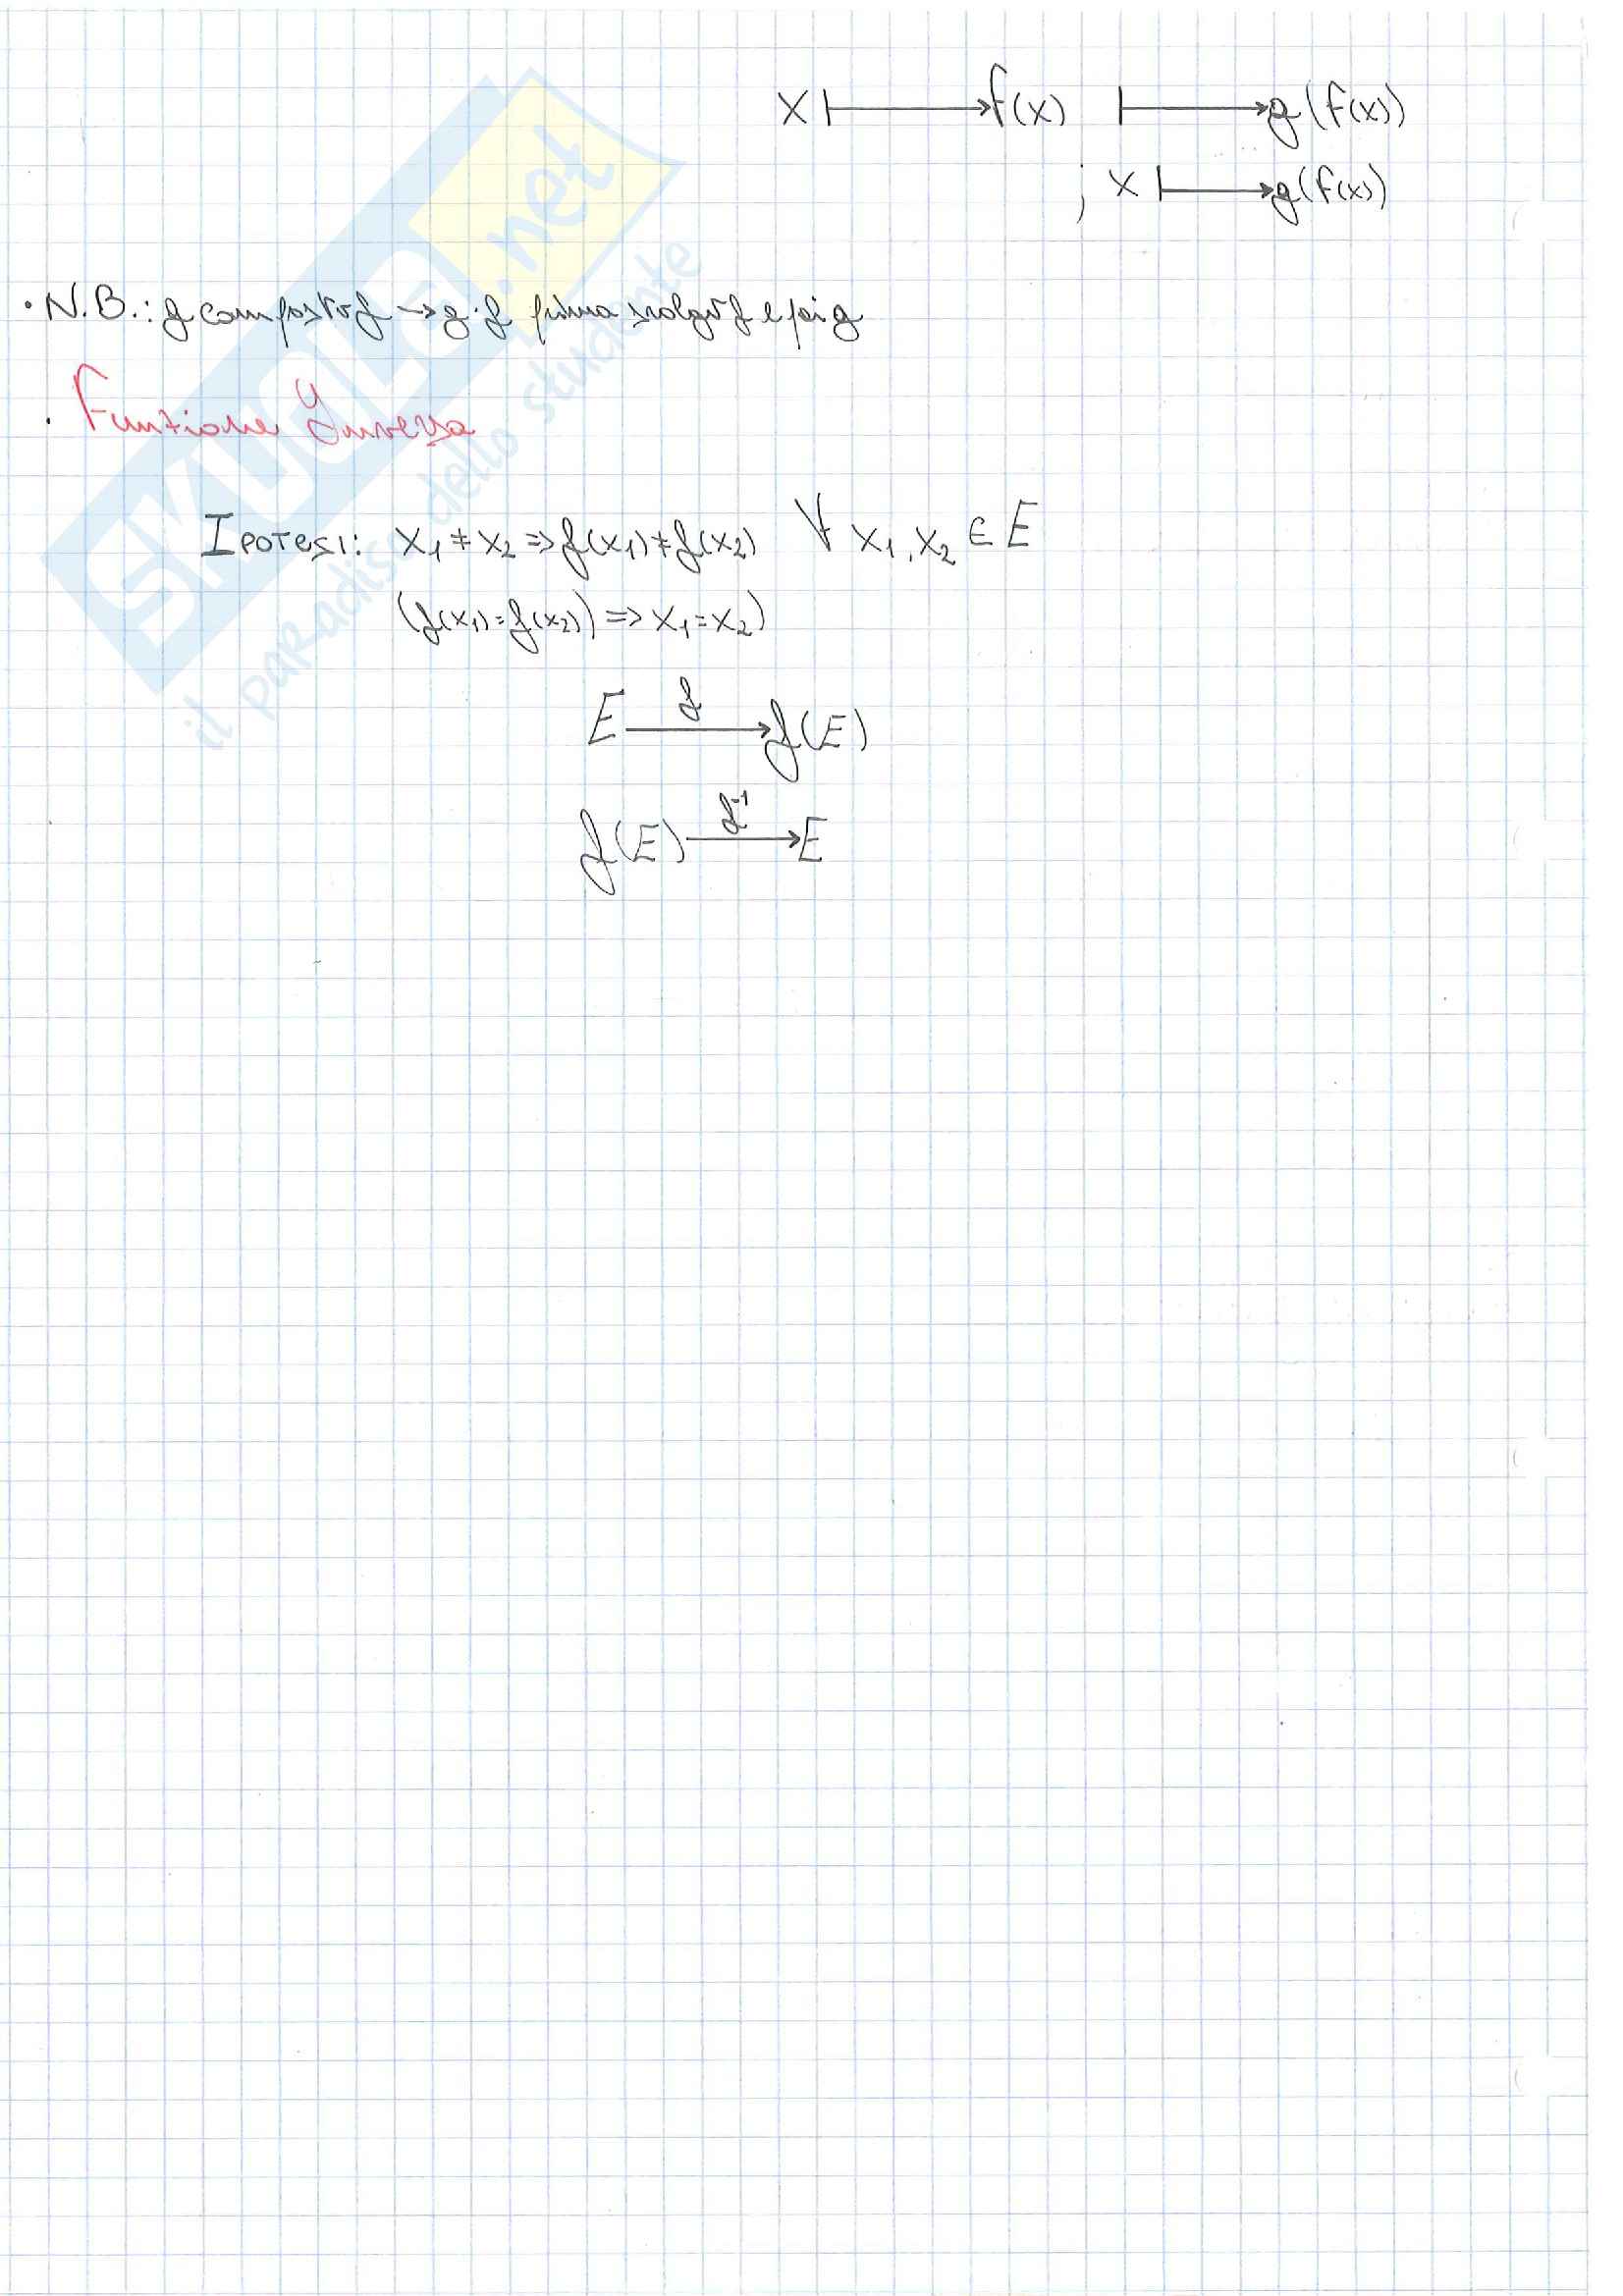 x ⟼ f(x) ⟼ g(f(x))
; x ⟼ g(f(x))
• N.B.: g composto f → g·f prima svolgo f e poi g
. Funzione Inversa
Ipotesi: x₁ ≠ x₂ ⇒ f(x₁) ≠ f(x₂) ∀ x₁, x₂ ∈ E
(f(x₁) = f(x₂)) ⇒ x₁ = x₂)
E —f→ f(E)
f(E) —f⁻¹→ E
SKUOLA.net
il paradiso dello studente